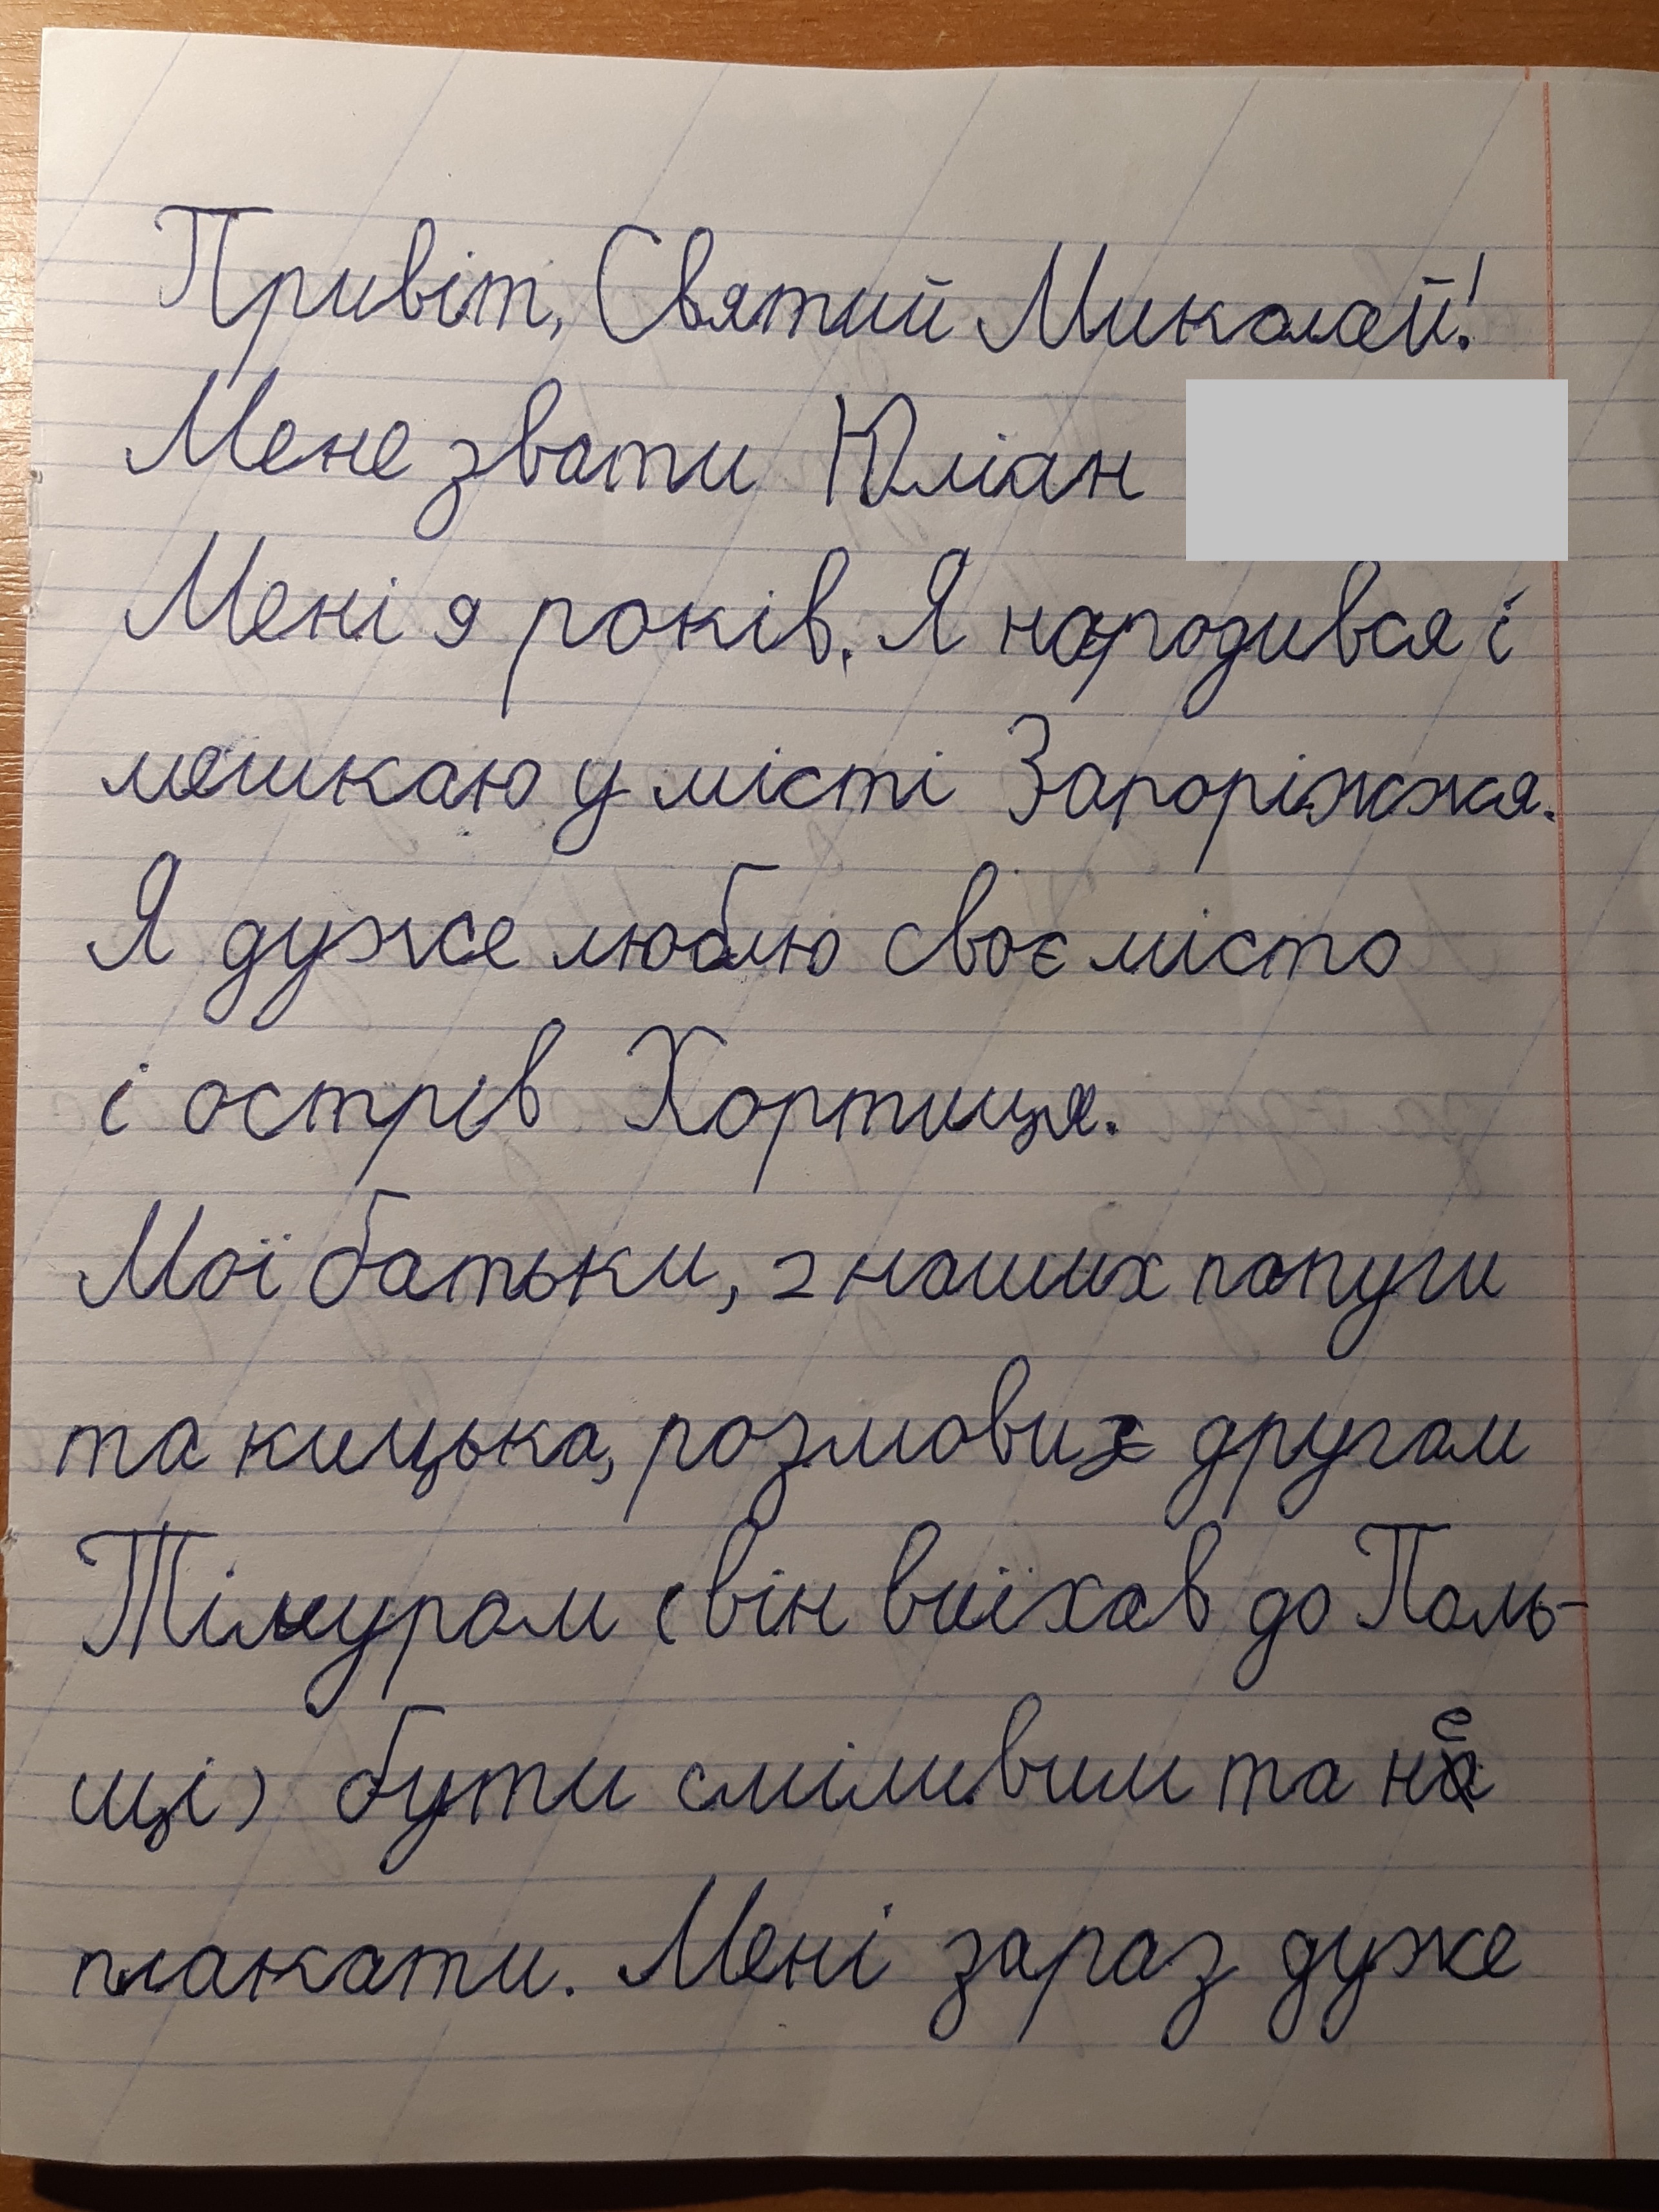 Привіт, Святий Миколай!
Мене звати Юліан
Мені 9 років. Я народився і
мешкаю у місті Запоріжжя.
Я дуже люблю своє місто
і острів Хортиця.
Мої батьки, 2 наших папуги
та кицька, розмови з другом
Тімуром (він виїхав до Поль-
щі) бути сміливим та не
плакати. Мені зараз дуже